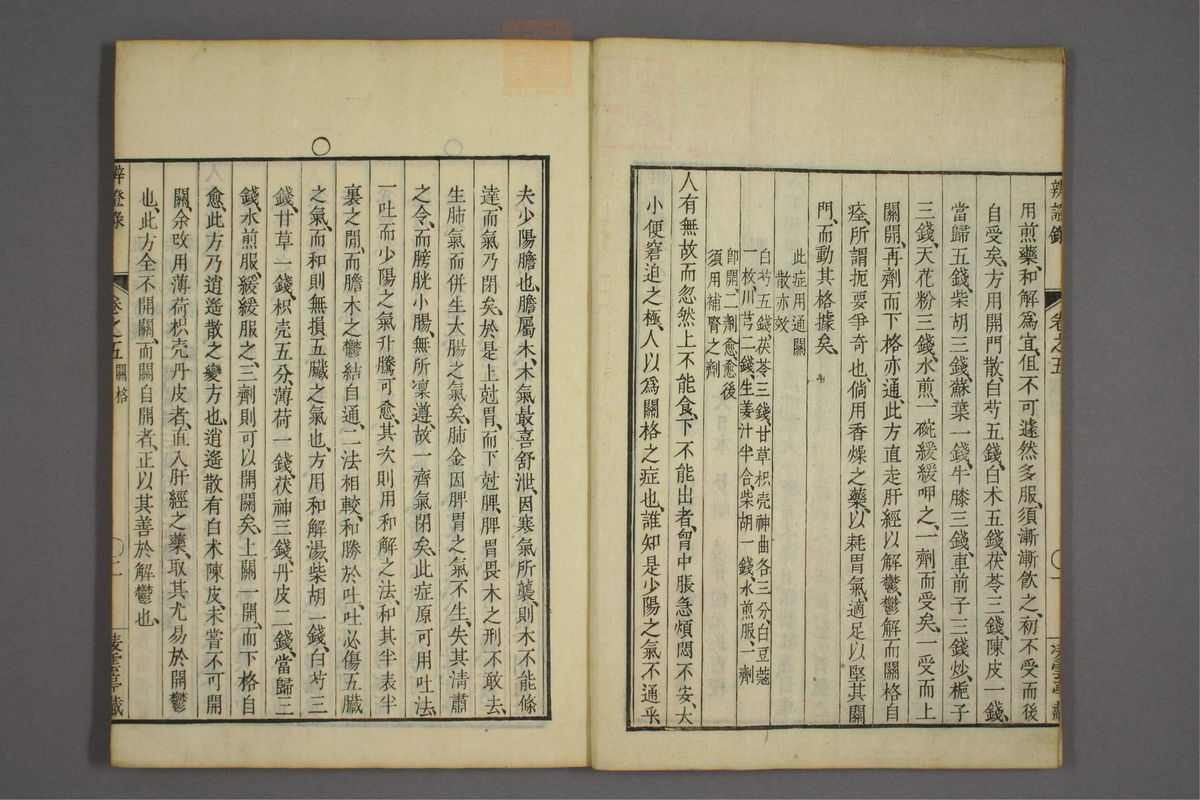 用煎藥、和解爲宜、但不可遽然多服、須漸漸飲之、初不受而後
自受矣、方用開門散、白芍五錢、白朮五錢、茯苓三錢、陳皮一錢、
當歸五錢、柴胡三錢、蘇葉一錢、牛膝三錢、車前子三錢炒、梔子
三錢、天花粉三錢、水煎、一碗緩緩呷之、一劑而受矣、一受而上
關開、再劑而下格亦通、此方直走肝經以解鬱、鬱解而關格自
痊、所謂扼要爭奇也、倘用香燥之藥、以耗胃氣、適足以堅其關
門、而動其格據矣、
此症用通關
散亦效
白芍五錢、茯苓三錢、甘草枳壳神曲各三分、白豆蔻
一枚、川芎二錢、生姜汁半合、柴胡一錢、水煎服、一劑
卽開、二劑愈、愈後
須用補腎之劑
人有無故而忽然上不能食、下不能出者、胷中脹急、煩悶不安、大
小便窘迫之極、人以爲關格之症也、誰知是少陽之氣不通乎、
夫少陽膽也、膽屬木、木氣最喜舒泄、因寒氣所襲、則木不能條
達、而氣乃閉矣、於是上尅胃、而下尅脾、脾胃畏木之刑、不敢去
生肺氣、而併生大腸之氣矣、肺金因脾胃之氣不生、失其淸肅
之令、而膀胱小腸、無所凜遵、故一齊氣閉矣、此症原可用吐法、
一吐而少陽之氣升騰可愈、其次則用和解之法、和其半表半
裏之閒、而膽木之鬱結自通、二法相較、和勝於吐、吐必傷五臟
之氣、而和則無損五臟之氣也、方用和解湯、柴胡一錢、白芍三
錢、甘草一錢、枳壳五分、薄荷一錢、茯神三錢、丹皮二錢、當歸三
錢、水煎服、緩緩服之、三劑則可以開關矣、上關一開、而下格自
愈、此方乃逍遙散之變方也、逍遙散有白朮陳皮、未嘗不可開
關、余改用薄荷枳壳丹皮者、直入肝經之藥、取其尤易於開鬱
也、此方全不開關、而關自開者、正以其善於解鬱也、
辨證錄
卷之五 關格
〇二